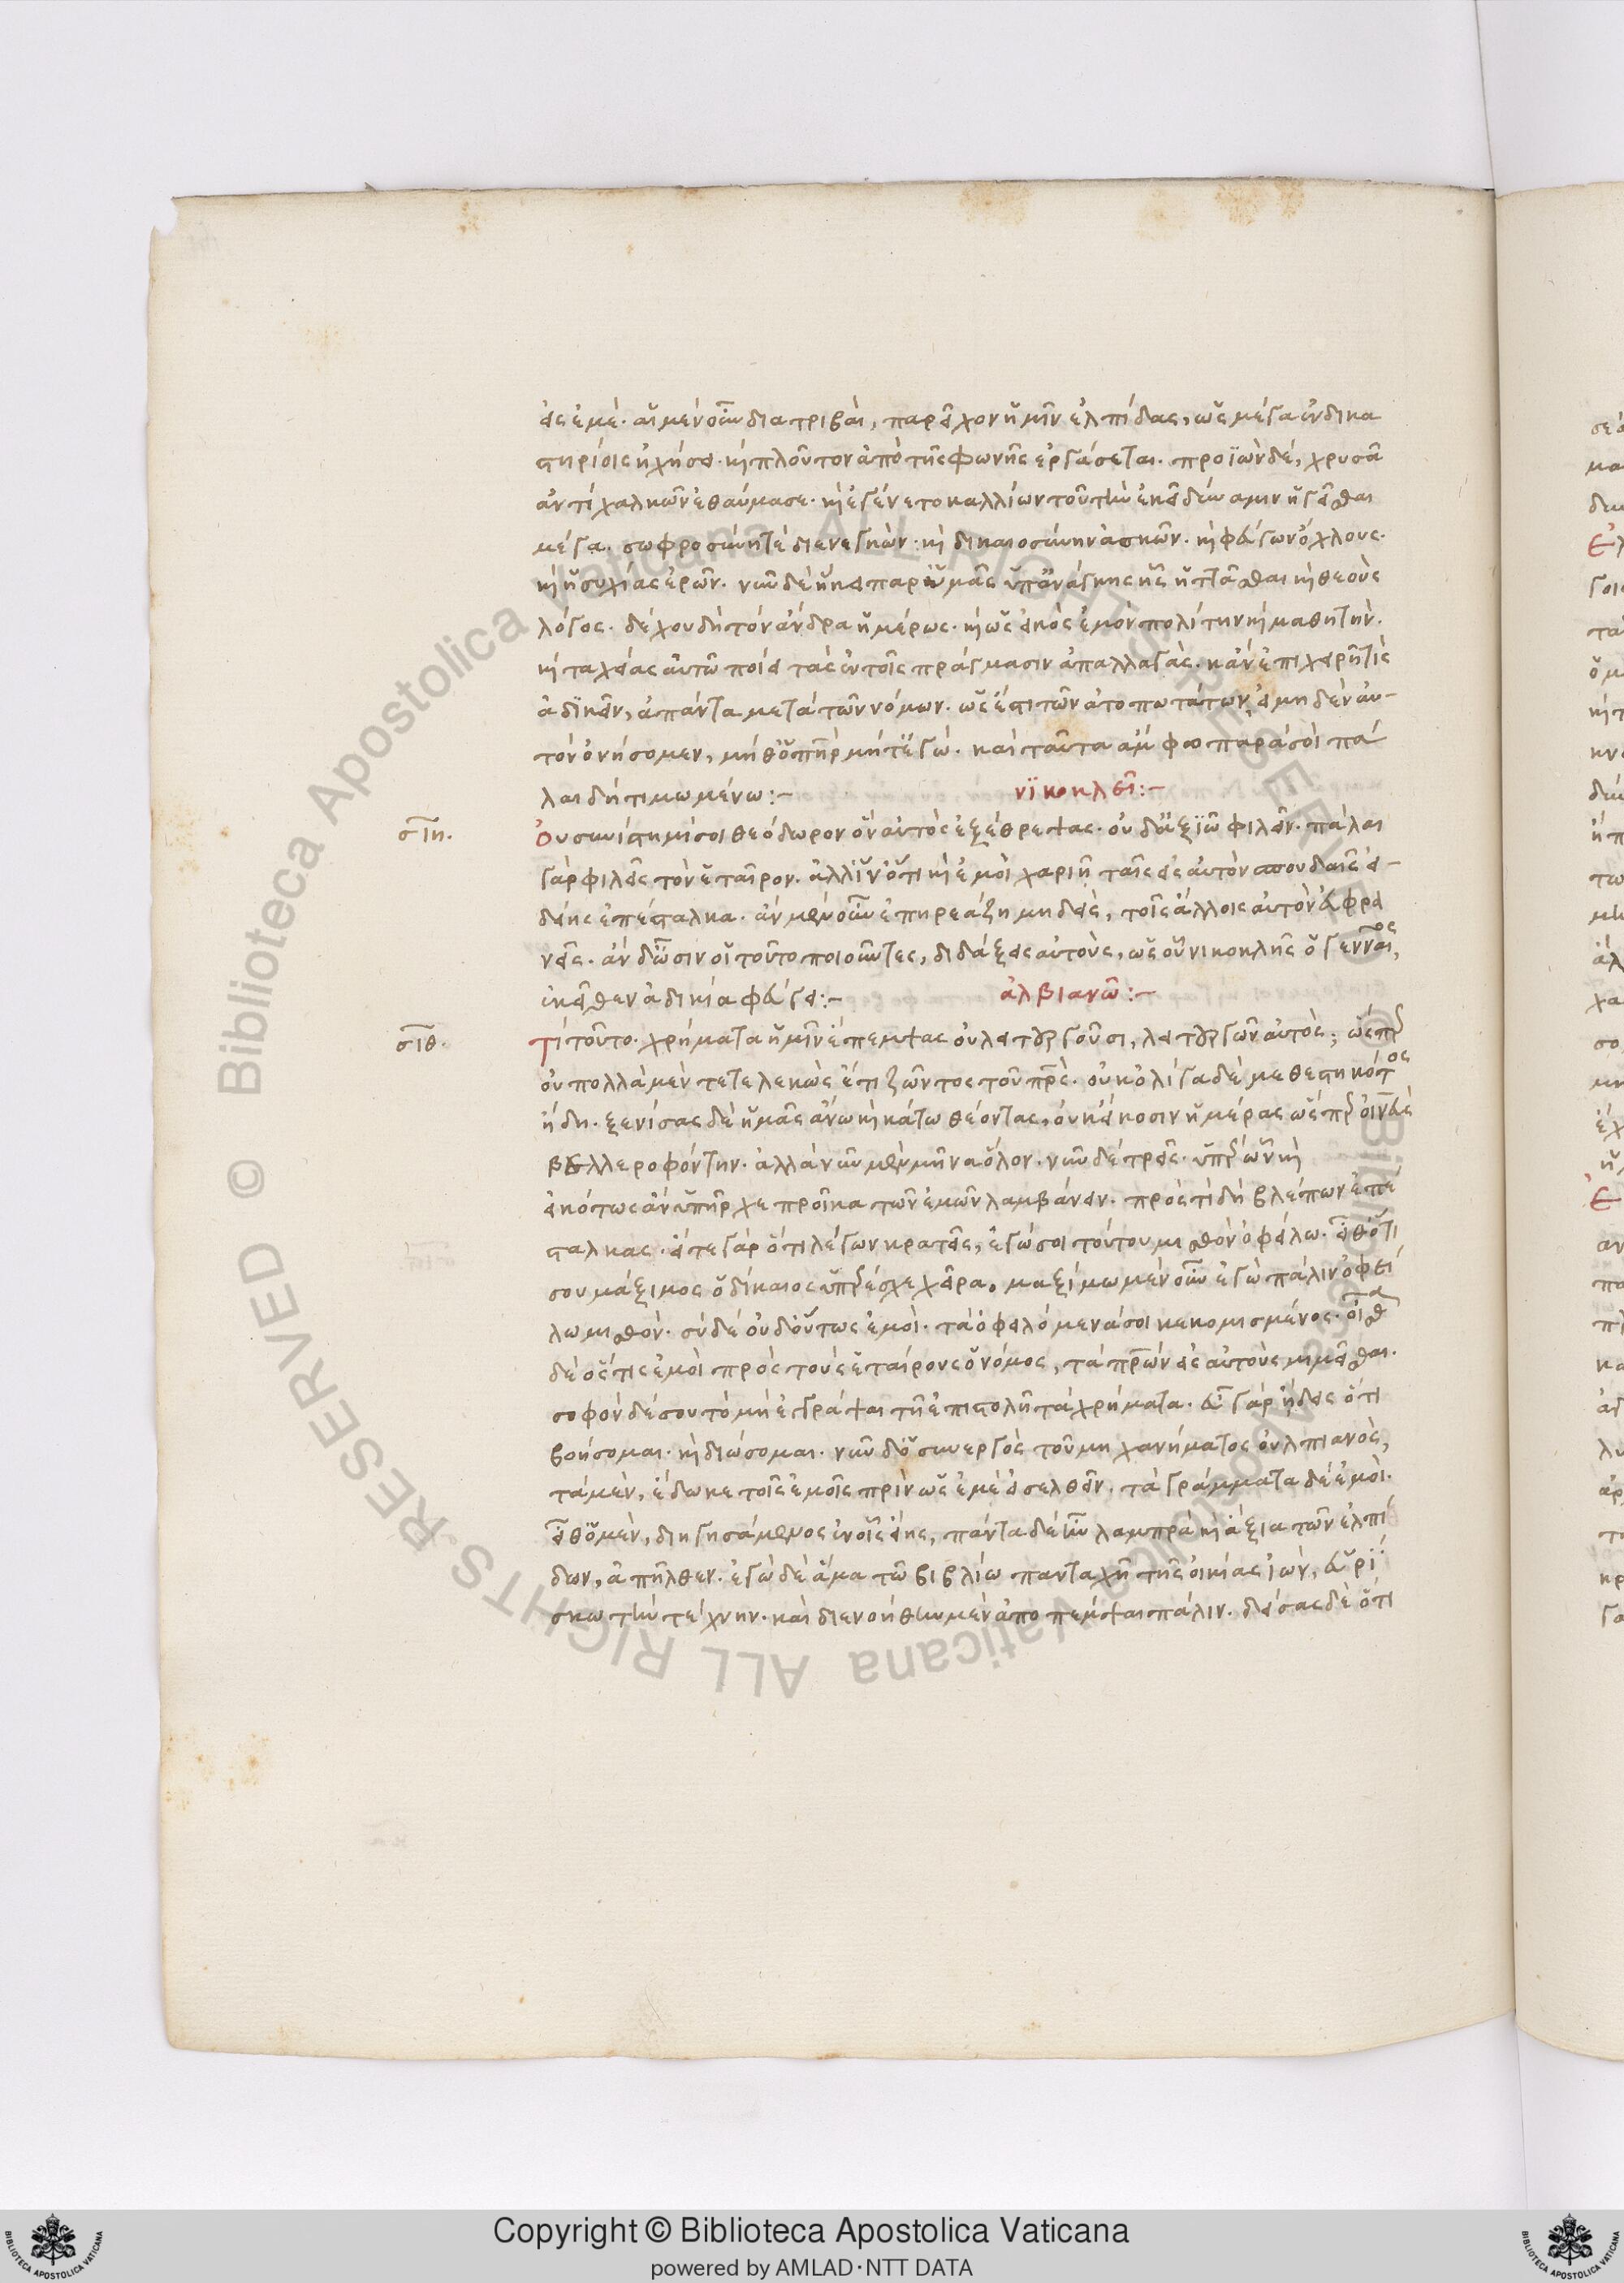 εἰς ἐμέ. αἱ μὲν οὖν διατριβαὶ, παρεῖχον ἡμῖν ἐλπίδας, ὡς μέγα ἐν δικα
στηρίοις ἠχήσει. καὶ πλοῦτον ἀπὸ τῆς φωνῆς ἐργάσεται. προϊὼν δὲ, χρυσᾶ
ἀντὶ χαλκῶν ἐθαύμασε. καὶ ἐγένετο καλλίων τοῦ τὴν ἐκεῖ δύναμιν ἡγεῖσθαι
μέγα. σωφροσύνη τὲ διενεγκὼν. καὶ δικαιοσύνην ἀσκῶν. καὶ φεύγων ὄχλους.
καὶ ἡσυχίας ἐρῶν. νῦν δὲ ἥκει παρ' ὑμᾶς ὑπ' ἀνάγκης ἧς ἡττᾶσθαι καὶ θεοὺς
λόγος. δέχου δὴ τὸν ἄνδρα ἡμέρως. καὶ ὡς εἰκὸς ἐμὸν πολίτην καὶ μαθητήν.
καὶ ταχείας αὐτῶ ποίει τὰς ἐν τοῖς πράγμασιν ἀπαλλαγάς. κἂν ἐπιχειρῆ τίς
ἀδικεῖν, ἀπάντα μετὰ τῶν νόμων. ὡς ἔστι τῶν ἀτοπωτάτων, εἰ μηδὲν αὐ-
τὸν ὀνήσομεν, μήθ' ὁ πατὴρ μήτ' ἐγώ. καὶ ταῦτα ἄμφω παρὰ σοὶ πά
λαι δὴ τιμωμένω:-
νικοκλεῖ:-
σιη.
Οὐ συνίστημί σοι θεόδωρον ὃν αὐτὸς ἐξέθρεψας. οὐδ' ἀξιῶ φιλεῖν. πάλαι
γὰρ φιλεῖς τὸν ἑταῖρον. ἀλλ' ἵν' ὅτι καὶ ἐμοὶ χαριῆ ταῖς εἰς αὐτὸν σπουδαῖς εἰ-
δείης ἐπέσταλκα. ἂν μὲν οὖν ἐπηρεάζη μηδεὶς, τοῖς ἄλλοις αὐτὸν εὐφρα
νεῖς. ἂν δ' ὦσιν οἱ τοῦτο ποιοῦντες, διδάξεις αὐτοὺς, ὡς οὗ νικοκλῆς ὁ γενναῖος,
ἐκεῖθεν ἀδικία φεύγει:-
ἀλβιανῶ:-
σιθ.
Τί τοῦτο. χρήματα ἡμῖν ἔπεμψας οὐ λειτουργοῦσι, λειτουργῶν αὐτός; ὥσπερ
οὐ πολλὰ μὲν τετελεκὼς ἔτι ζῶντος τοῦ πατρός. οὐκ ὀλίγα δὲ μεθεστηκότος
ἤδη. ξενίσας δὲ ἡμᾶς ἄνω καὶ κάτω θέοντας, οὐκ εἴκοσιν ἡμέρας ὥσπερ οἰνεὺς
βελλεροφόντην. ἀλλὰ νῦν μὲν μῆνα ὅλον. νῦν δὲ τρεῖς. ὑπὲρ ὧν καὶ
εἰκότως ἂν ὑπῆρχε προῖκα τῶν ἐμῶν λαμβάνειν. πρὸς τί δὴ βλέπων ἐπέ
σταλκας. εἴτε γὰρ ὅτι λέγων κρατεῖς, ἐγώ σοι τούτου μισθὸν ὀφείλω. εἴθ' ὅτι
σου μάξιμος ὁ δίκαιος ὑπερέσχε χεῖρα, μαξίμω μὲν οὖν ἐγὼ πάλιν ὀφεί
λω μισθόν. σὺ δὲ οὐδ' οὕτως ἐμοὶ. τὰ ὀφειλόμενά σοι κεκομισμένος. οἶσθα
δὲ ὅς τις ἐμοὶ πρὸς τοὺς ἑταίρους ὁ νόμος, τὰ πατέρων εἰς αὐτοὺς μιμεῖσθαι.
σοφὸν δέ σου τὸ μὴ ἐγγράψαι τῆ ἐπιστολῆ τὰ χρήματα. εὖ γὰρ ἤδεις ὅτι
βοήσομαι. καὶ διώσομαι. νῦν δ' ὁ συνεργὸς τοῦ μηχανήματος οὐλπιανὸς,
τὰ μὲν, ἔδωκε τοῖς ἐμοῖς πρὶν ὡς ἐμὲ εἰσελθεῖν. τὰ γράμματα δὲ ἐμοί.
εἶθ' ὁ μὲν, διηγησάμενος ἐν οἷς εἴης, πάντα δὲ ἦν λαμπρὰ καὶ ἄξια τῶν ἐλπί
δων, ἀπῆλθεν. ἐγὼ δὲ ἅμα τῶ βιβλίω πανταχῆ τῆς οἰκίας ἰὼν, εὑρί
σκω τὴν τέχνην. καὶ διενοήθην μὲν ἀποπέμψαι πάλιν. δείσας δὲ ὅτι
Copyright © Biblioteca Apostolica Vaticana
powered by AMLAD·NTT DATA